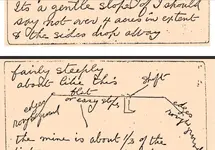 Its a gentle slope I should
say not over 4 acres in extent
& the sides drop away
fairly steeply
about like this
flat
or easy slope
shaft
edge
rough ground
edge
rough ground
the mine is about 1/3 of the